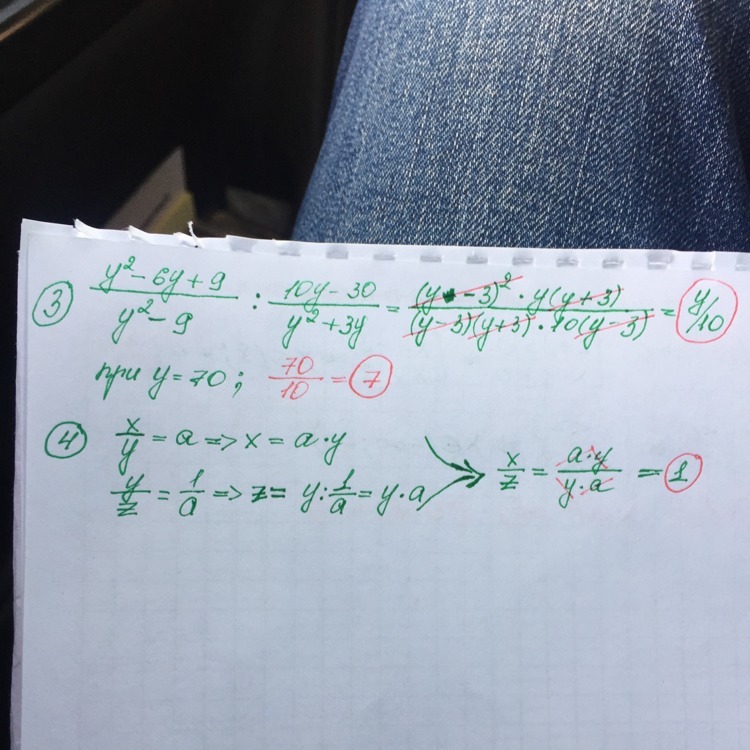 ③ (y² - 6y + 9)/(y² - 9) : (10y - 30)/(y² + 3y) = ((y - 3)² · y(y + 3))/((y - 3)(y + 3) · 10(y - 3)) = y/10
при y = 70; 70/10 = 7
④ x/y = a => x = a · y
y/z = 1/a => z = y : 1/a = y · a
x/z = (a · y)/(y · a) = 1